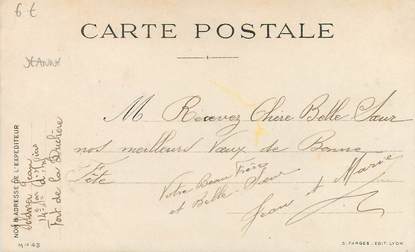 6 €
JEANNE
CARTE POSTALE
M Recevez Chère Belle-Sœur
nos meilleurs Vœux de Bonne
Fête
Votre Beau Frère
et Belle-Sœur
Jean et Marie
NOM & ADRESSE DE L'EXPÉDITEUR
Jean
Fort de la Duchère
Mlle 43
S. FARGES - EDIT. LYON